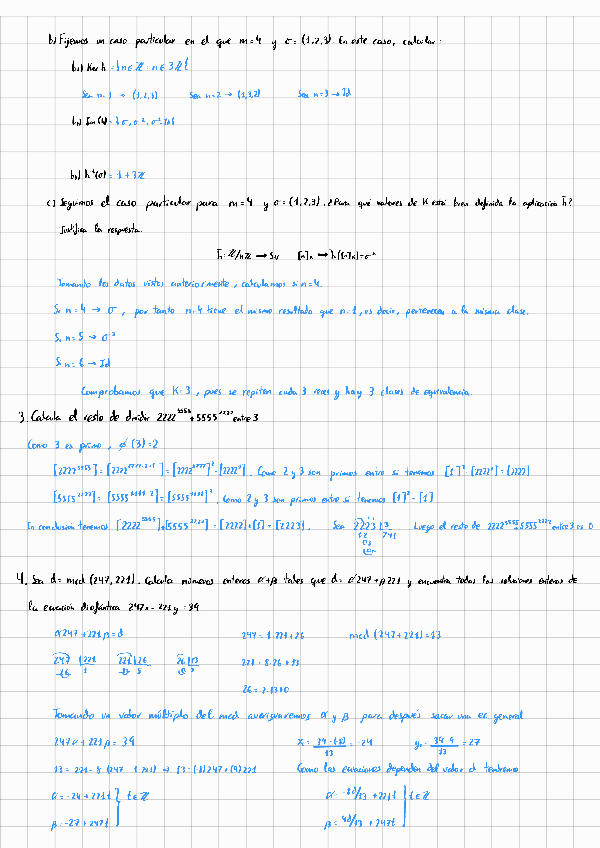 b) Fijemos un caso particular en el que m=4 y σ=(1,2,3). En este caso, calcular:
b₁) Ker h = {n∈ℤ : n∈3ℤ}
Sea n=1 → (1,2,3) Sea n=2 → (1,3,2) Sea n=3 → Id
b₂) Im(h) = {σ, σ², σ³=Id}
b₃) h⁻¹(σ) = 1+3ℤ
c) Seguimos el caso particular para m=4 y σ=(1,2,3). ¿Para qué valores de K está bien definida la aplicación h̄?
Justifica la respuesta.
Tomando los datos vistos anteriormente, calculamos si n=4.
Si n=4 → σ, por tanto n=4 tiene el mismo resultado que n=1, es decir, pertenecen a la misma clase.
Si n=5 → σ²
Si n=6 → Id
Comprobamos que K=3, pues se repiten cada 3 veces y hay 3 clases de equivalencia.
3. Calcula el resto de dividir 2222⁵⁵⁵⁵+5555²²²² entre 3
Como 3 es primo, φ(3)=2
Como 2 y 3 son primos entre si tenemos
Como 2 y 3 son primos entre si tenemos
En conclusión tenemos [2222⁵⁵⁵⁵]+[5555²²²²] = [2222]+[1] = [2223]. Sea 2223 Luego el resto de 2222⁵⁵⁵⁵+5555²²²² entre 3 es 0
4. Sea d= mcd (247,221). Calcula números enteros α+β tales que d= α247+β221 y encuentra todas las soluciones enteras de
la ecuación diofántica 247x-221y=39
α247+221β=d 247=1·221+26 mcd(247,221)=13
247 |221 221 |26 26 |13 221=8·26+13
26=2·13+0
Tomando un valor múltiplo del mcd averiguaremos α y β para después sacar una ec general
247α+221β=39 x₀= 39·(-8)/13 = -24 y₀= 39·9/13 = 27
13=221-8(247-1·221) → 13=(-8)247+(9)221 Como las ecuaciones dependen del valor d tendremos
α=-24+221t } t∈ℤ α= -8d/13 +221t } t∈ℤ
β=-27+247t